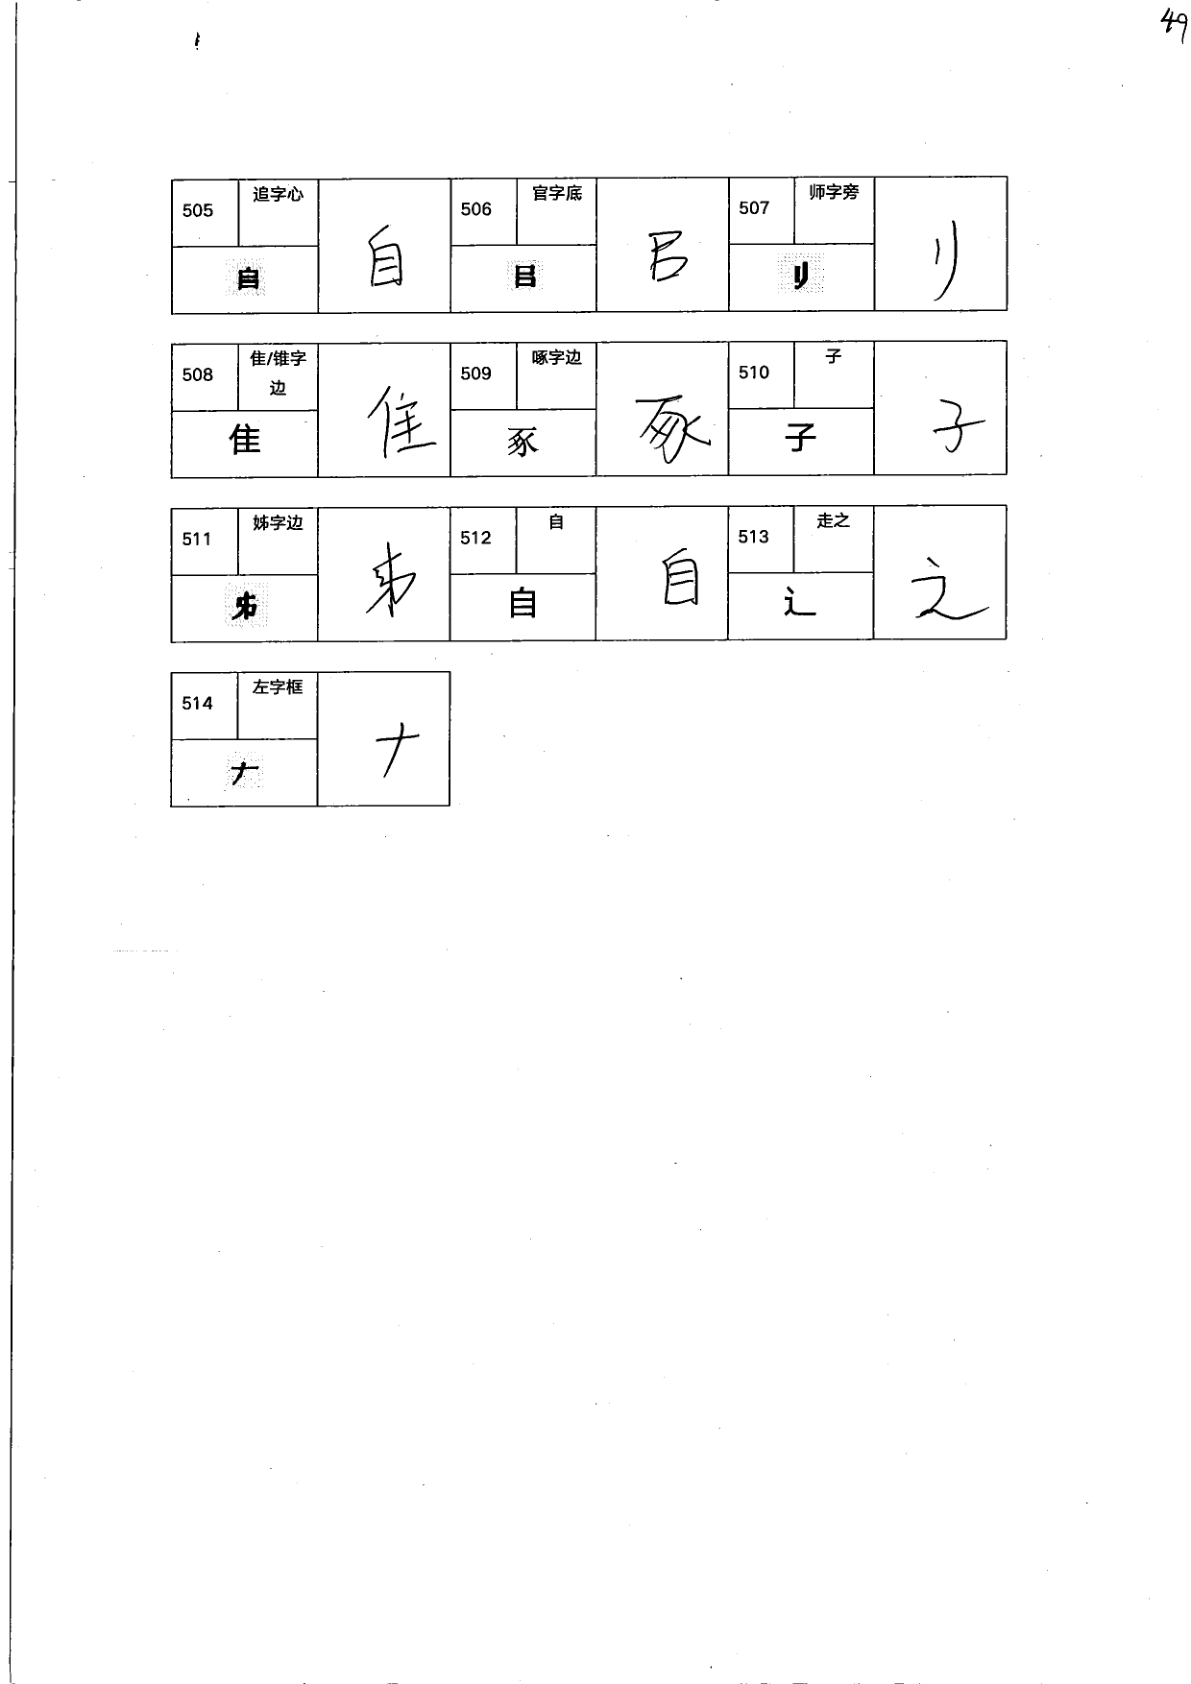 49
505 追字心 𠂤 自 506 官字底 㠯 㠯 507 师字旁 刂 刂
508 隹/锥字边 隹 隹 509 啄字边 豕 豕 510 子 子 子
511 姊字边 𠂔 512 自 自 自 513 走之 辶 之
514 左字框 𠂇 𠂇